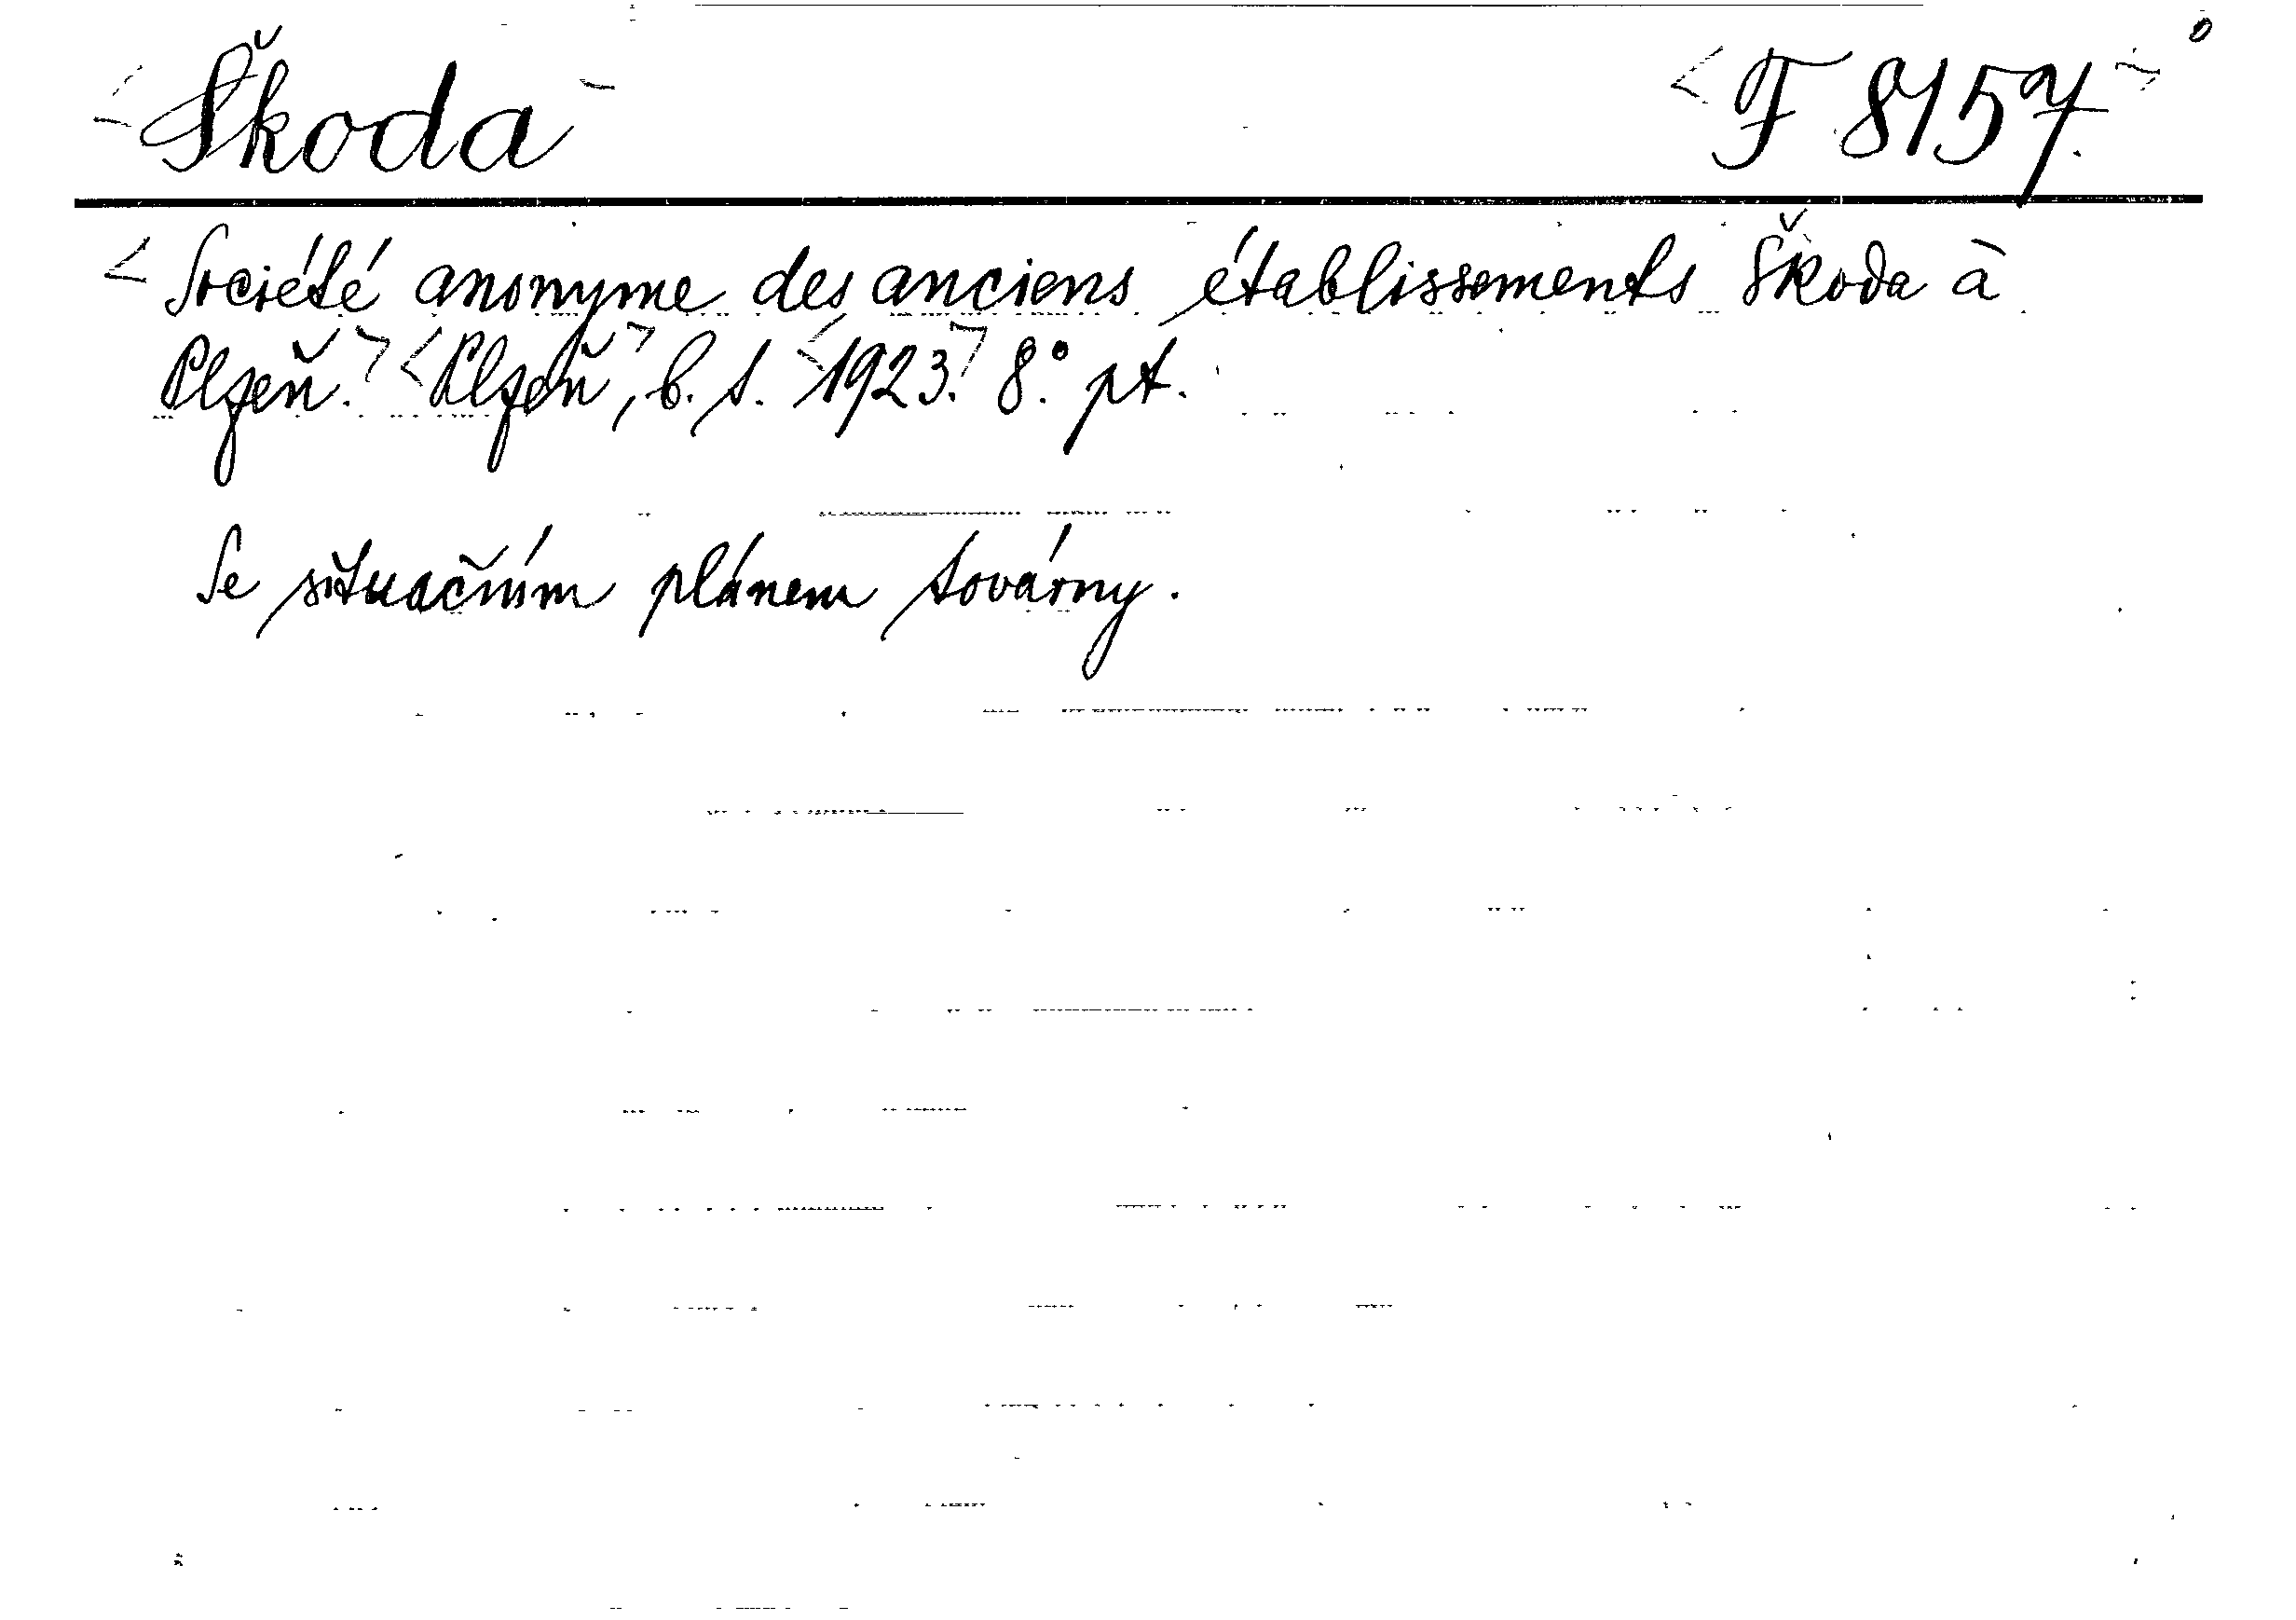 Škoda F 8157.
Société anonyme des anciens établissements Škoda à
Plzeň. Plzeň, b. t. 1923. 8.° pt.
Se situačním plánem továrny.